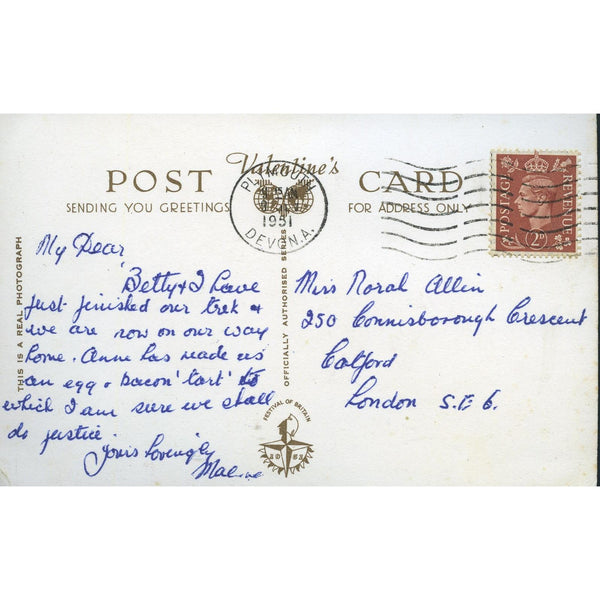 Valentine's
POST CARD
SENDING YOU GREETINGS
FOR ADDRESS ONLY
PLYMOUTH
1951
DEVON. A.
POSTAGE
REVENUE
2D
THIS IS A REAL PHOTOGRAPH
OFFICIALLY AUTHORISED SERIES
FESTIVAL OF BRITAIN
My Dear
Betty & I have
just finished our trek &
we are now on our way
home. Anne has made us
an egg & bacon 'tart' to
which I am sure we shall
do justice.
Yours lovingly
Miss Norah Allin
250 Connisborough Crescent
Catford
London S.E 6.